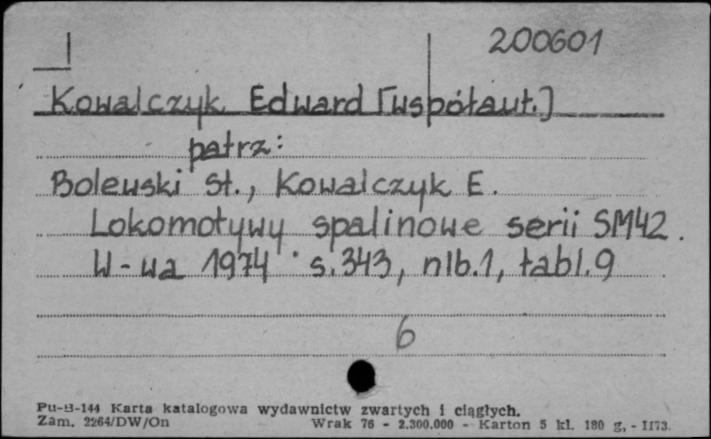 200601
Kowalczyk Edward [współaut.]
patrz:
Bolewski St., Kowalczyk E.
Lokomotywy spalinowe serii SM42.
W-wa 1974 s.343, nlb.1, tabl.9
6
Pu-B-144 Karta katalogowa wydawnictw zwartych i ciągłych.
Zam. 2264/DW/On Wrak 76 - 2.300.000 - Karton 5 kl. 180 g, - II73.